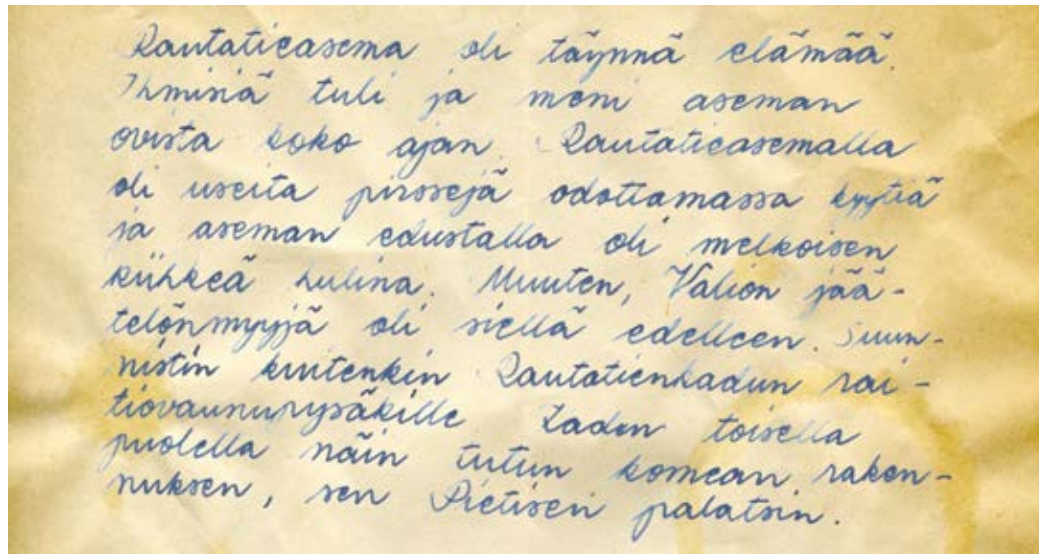 Rautatieasema oli täynnä elämää.
Ihmisiä tuli ja meni aseman
ovista koko ajan. Rautatieasemalla
oli useita pirssejä odottamassa kyytiä
ja aseman edustalla oli melkoisen
kiihkeä hulina. Muuten, Valion jää-
telönmyyjä oli siellä edelleen. Suun-
nistin kuitenkin Rautatienkadun rai-
tiovaunupysäkille Kadun toisella
puolella näin tutun komean raken-
nuksen, sen Pietisen palatsin.